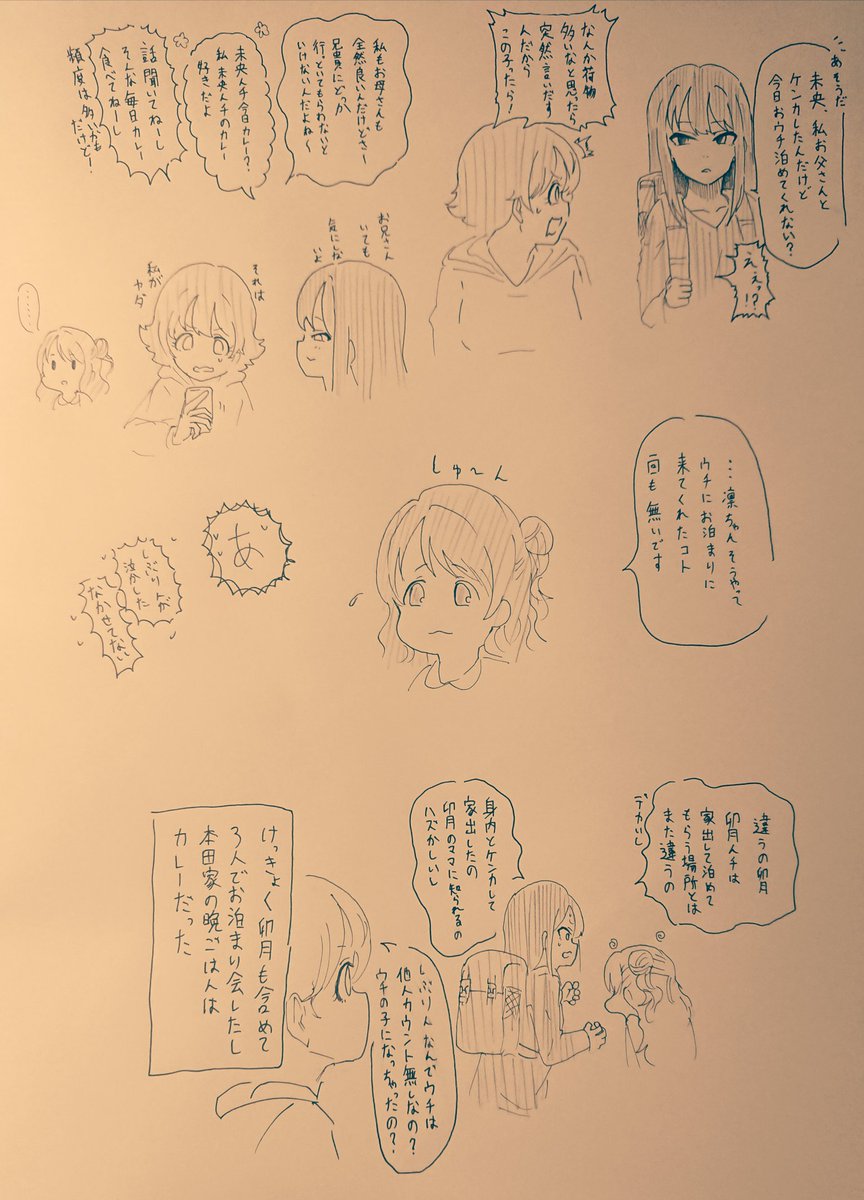 あそうだ
未央、私お父さんと
ケンカしたんだけど
今日おウチ泊めてくれない?
ええっ!?
なんか荷物
多いなと思ったら
突然言いだす
んだから
この子ったら!
私もお母さんも
全然良いんだけどさー
兄貴にどっか
行っといてもらわないと
いけないんだよね〜
未央んチ今日カレー?
私未央んチのカレー
好きだよ
話聞いてねーし
そんな毎日カレー
食べてねーし
頻度は多いかも
だけど!
お兄さん
いても
気にしない
よ
それは
私が
ヤダ
……
…凛ちゃんそうやって
ウチにお泊まりに
来てくれたコト
一回も無いです
しゅ〜ん
あ
しぶりんが
泣かした
なかせてない
違うの卯月
卯月んチは
家出して泊めて
もらう場所とは
また違うの
デカいし
身内とケンカして
家出したの
卯月のママに知られるの
ハズかしいし
しぶりんなんでウチは
他人カウント無しなの?
ウチの子になっちゃったの?
けっきょく卯月も含めて
3人でお泊まり会したし
本田家の晩ごはんは
カレーだった